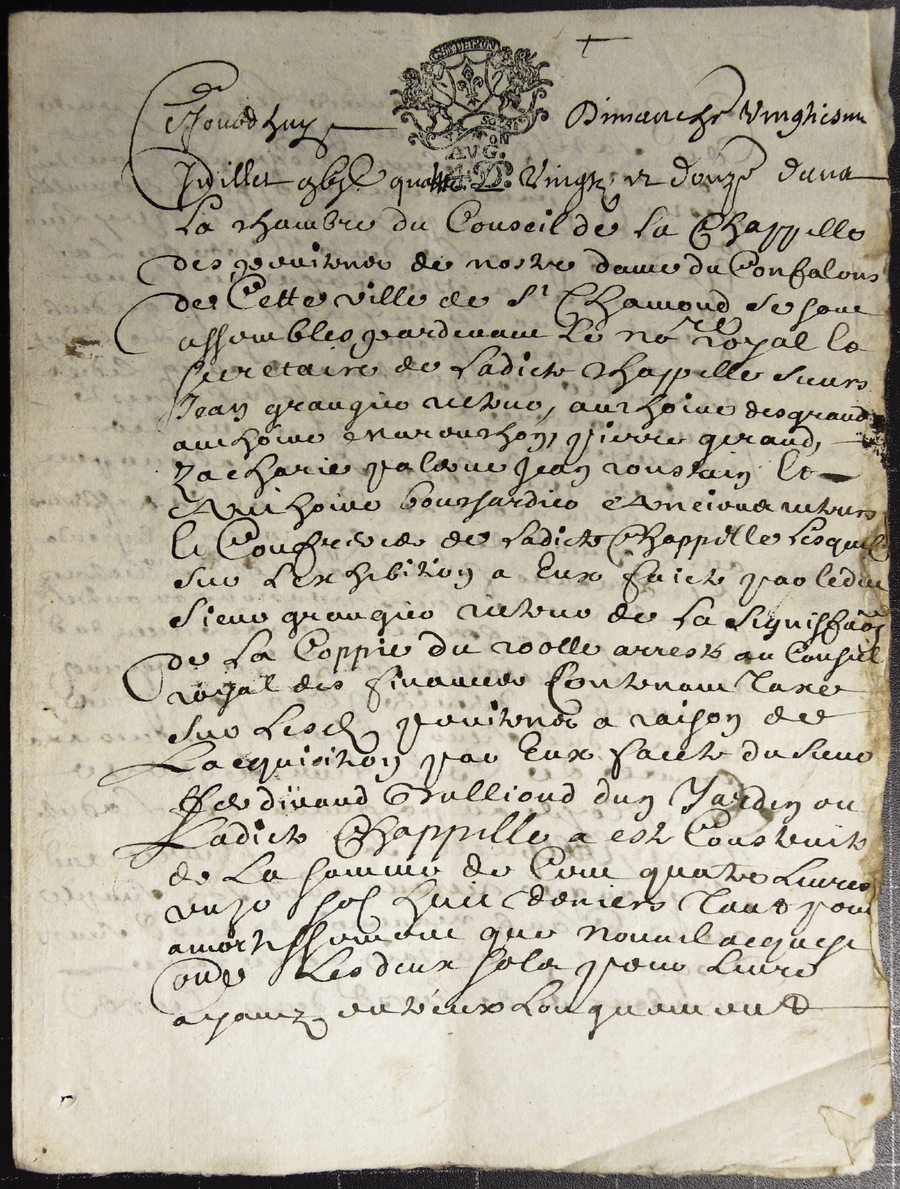 +
Ce Jourdhuy Dimanche Vingtiesme
Juillet quatre Vingtz et douze dans
La Chambre du Conseil de La Chappelle
des penitens de nostre dame du Confalons
de Cette ville de St Chamond se sont
assembles pardevant Le no.re royal le
secretaire de Ladicte Chappelle sieurs
Jean grangier recteur, anthoine desgrand
anthoine Marouchon pierre geraud,
Zacharie palerne Jean roustain Et
Anthoine boussardier Anciens recteurs
Et Confreres de Ladicte Chappelle Lesquelz
sur L'exhibition a Eux faicte par ledict
sieur grangier recteur de La Signiffi.on
de La Coppie du roolle arresté au Conseil
royal des finances Contenant Taxe
sur Lesd penitens a raison de
Lacquisition par Eux faicte du sieur
ferdinand Thulliond dun Jardin ou
Ladicte Chappelle a esté Construite
de La somme de Cent quatre Livres
unze solz huit deniers Tant pour
amortissement que nouvel acquest
Les deux solz pour Livre
ayant entr'eux Longuement
AVG.
4 D.